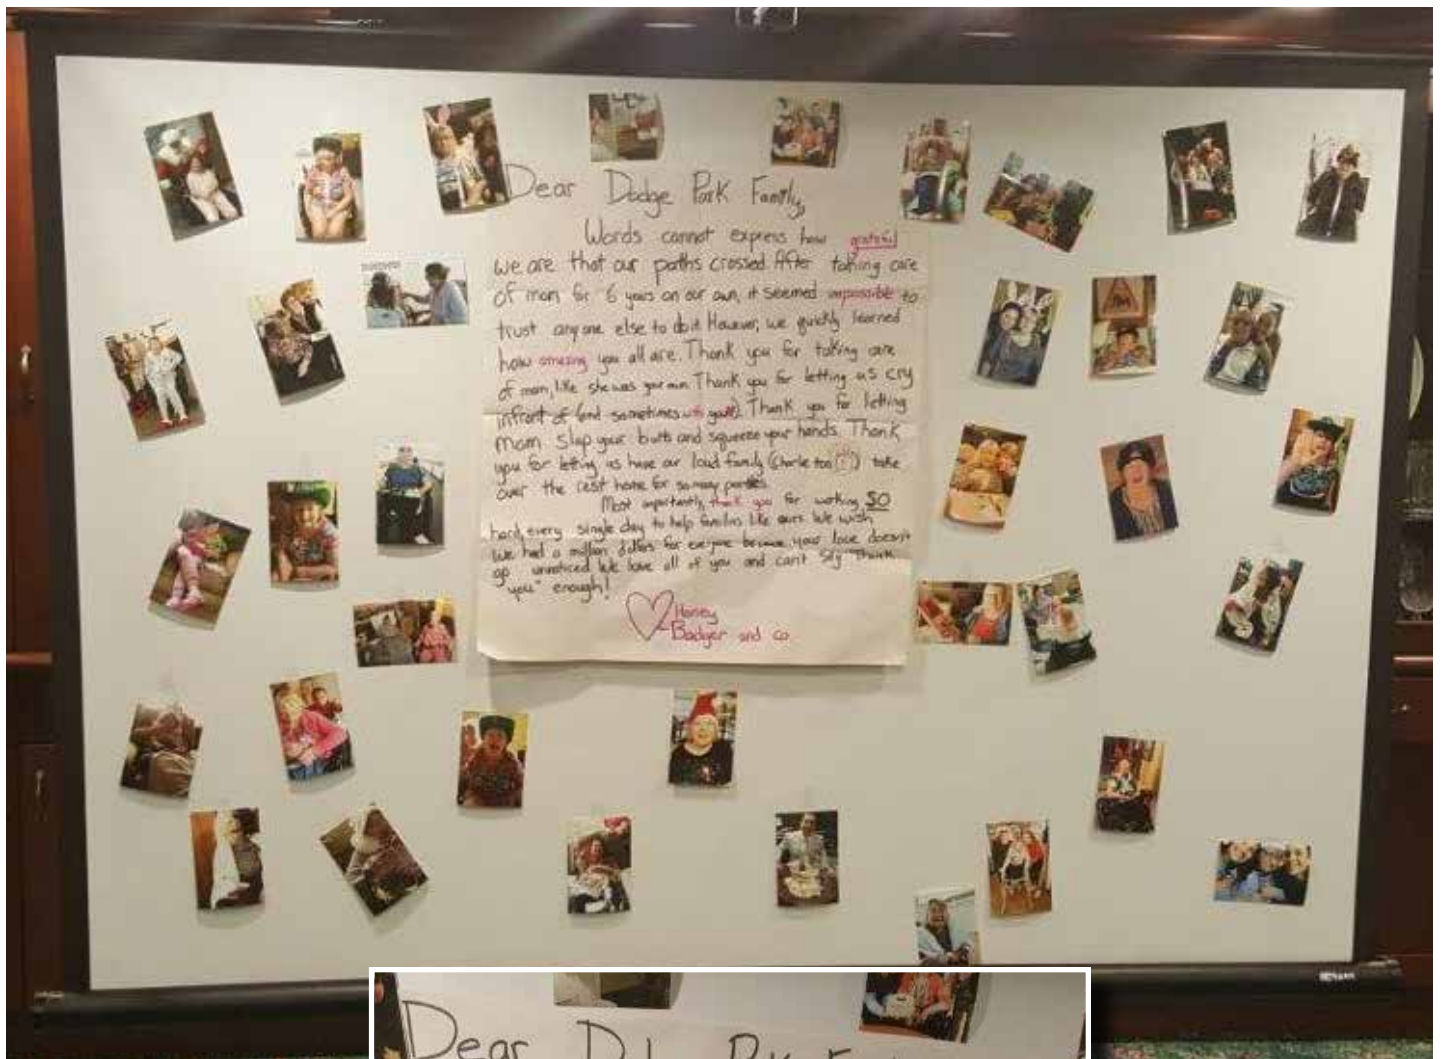 Dear Dodge Park Family,
Words cannot express how grateful
we are that our paths crossed. After taking care
of mom for 6 years on our own, it seemed impossible to
trust anyone else to do it. However, we quickly learned
how amazing you all are. Thank you for taking care
of mom, like she was your own. Thank you for letting us cry
infront of (and sometimes with you!!). Thank you for letting
mom slap your butts and squeeze your hands. Thank
you for letting us have our loud family (Charlie too) take
over the rest home for so many parties.
Most importantly, thank you for working SO
hard, every single day to help families like ours. We wish
we had a million dollars for everyone because your love doesn't
go unnoticed. We love all of you and can't say "Thank
you" enough!
Honey
Badger and co.
Dear D